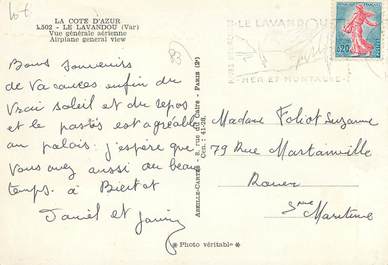 LA COTE D'AZUR
4.502 - LE LAVANDOU (Var)
Vue générale aérienne
Airplane general view
83
Bons souvenirs
de vacances enfin du
vrai soleil et du repos
et le pastis est agréable
au palais. j'espère que
vous avez aussi du beau
temps à
Daniel et
ABEILLE-CARTES - 8, rue du Caire - PARIS (2e)
Cen. 41-28
LE LAVANDOU
MER ET MONTAGNE
0,20
Madame Foliot Suzanne
79 Rue Martainville
Rouen
Sne Maritime
* Photo véritable *